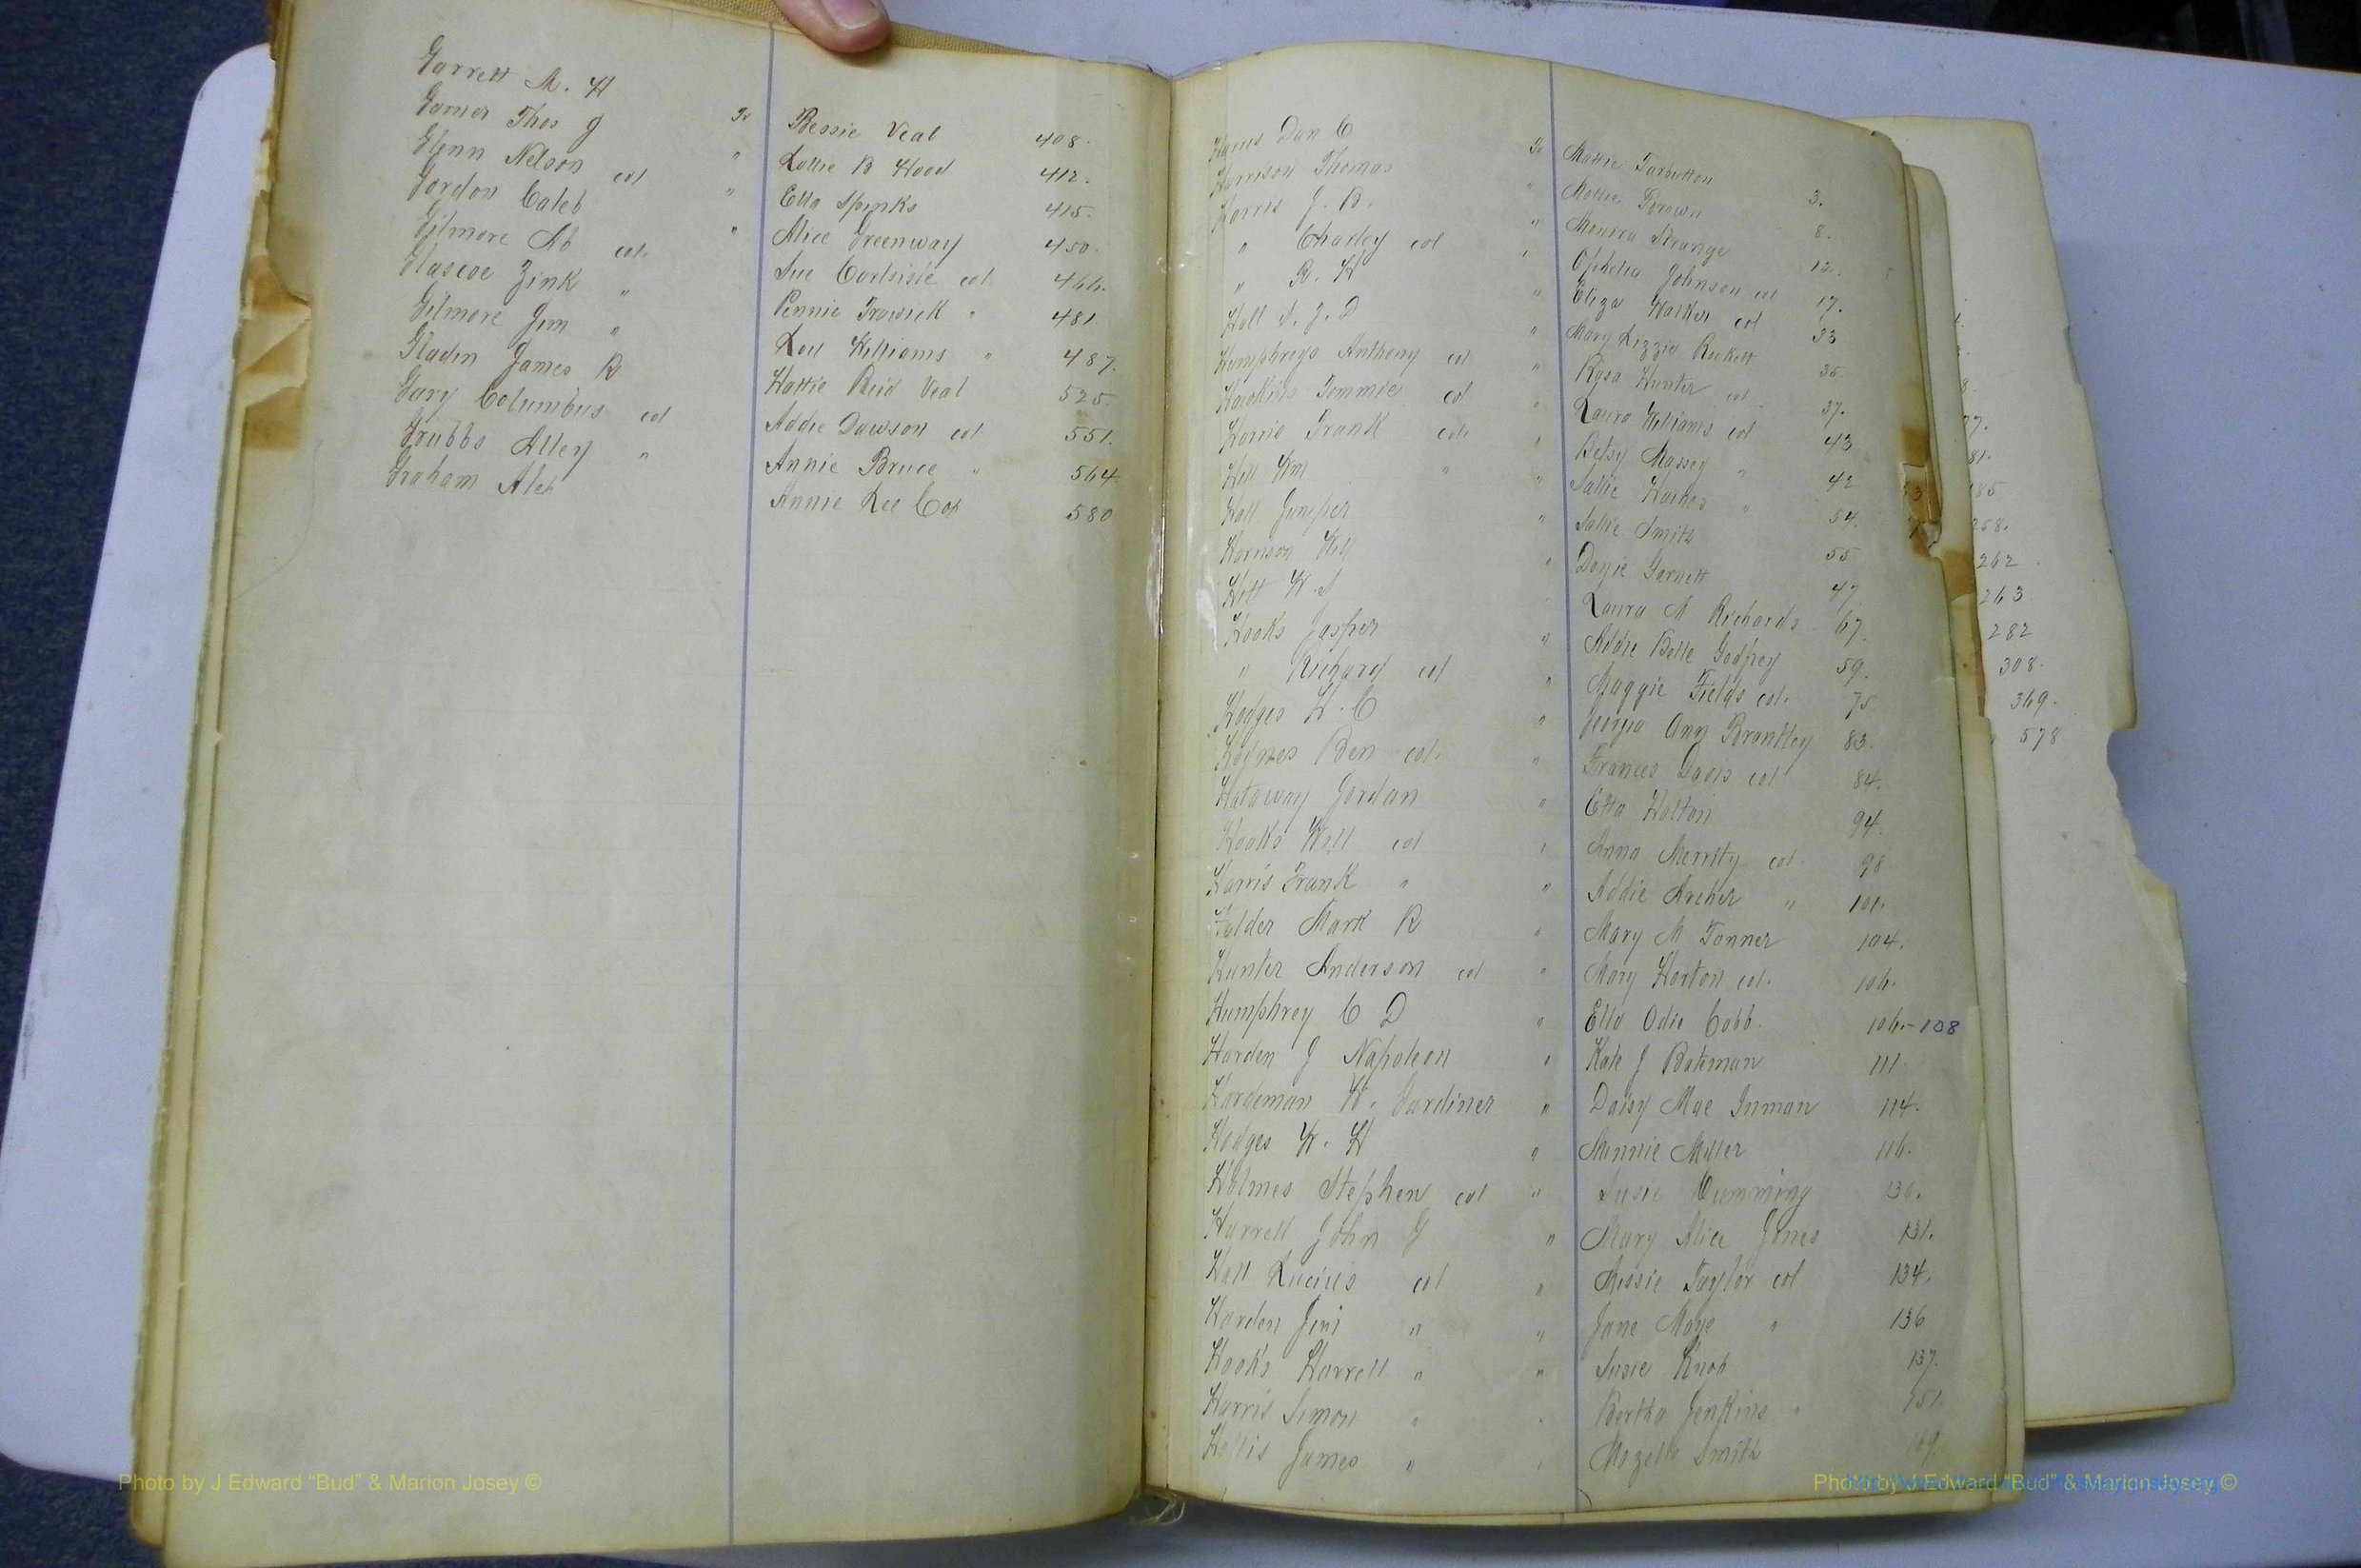 Garrett M. H To Bessie Veal 408.
Garner Thos J " Lottie B Hood 412.
Glenn Nelson col " Ella Spinks 415.
Gordon Caleb " Alice Greenway 450.
Gilmore Ab col. Sue Carlisle col 466.
Glascoe Zink " Pennie Trawick " 481.
Gilmore Jim " Lou Williams " 487.
Gladin James R Hattie Reid Veal 525.
Gary Columbus col Addie Dawson col 551.
Grubbs Alley " Annie Bruce " 564
Graham Alex Annie Lee Cox 580
Harris Dan C To Mattie Tarbutton 3.
Harrison Thomas " Mollie Brown 8.
Harris J. B. " Strange 12.
" Charley col " Ophelia Johnson col 17.
" R. H " Eliza Walker col 33
Hall S. J. D " Mary Lizzie Rockett 35.
Humphreys Anthony col " Rosa Hunter col 37.
Hawkins Tommie col " Laura Williams col 43
Harris Frank col. " Betsy Massey " 42
Hill Wm " " Sallie Haines " 54.
Hall Juniper " Sallie Smith 55
Harrison Will " Garnett 47
Hitt W. S Laura A Richards 67.
Hooks Jasper " Addie Belle Godfrey 59.
" Richard col " Maggie Fields col. 75
Hodges H. C " Georgia Ann Brantley 83.
Haynes Ben col. " Frances Davis col 84.
Hataway Jordan " Etta Holton 94.
Hooks Will col " Anna Merrity col. 98
Harris Frank " " Addie Archer " 101.
Holder Mark R " Mary M Tanner 104.
Hunter Anderson col " Mary Horton col. 106.
Humphrey C D " Ella Odie Cobb 106.-108
Harden J Napoleon " Kate J Bateman 111
Hardeman W. Gardiner " Daisy Mae Inman 114.
Hodges W. H " Minnie Miller 116.
Holmes Stephen col " Susie Cumming 130.
Harrell John G " Mary Alice Jones 131.
Hall Lucius col " Taylor col 134.
Harden Jim " " Jane Moye " 136
Hooks Harrell " " Susie Knox 137.
Harris Simon " " Bertha Jenkins " 151.
Hollis James " " Mozelle Smith
77.
81.
185
258.
262
263
282
308.
369.
578
Photo by J Edward “Bud” & Marion Josey ©
Photo by J Edward “Bud” & Marion Josey ©